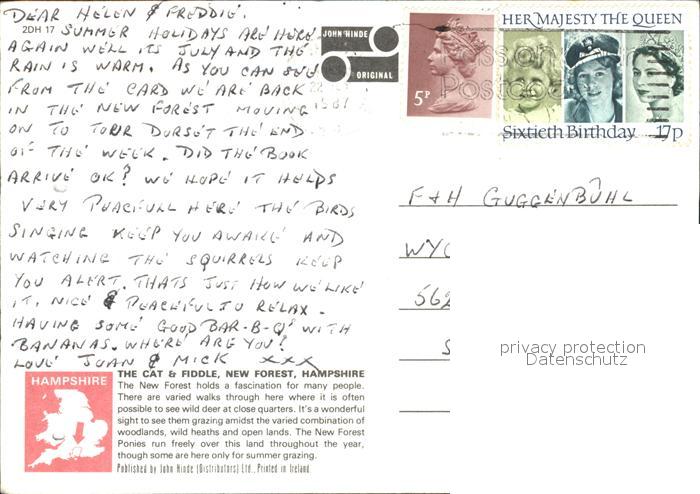 DEAR HELEN & FREDDIE.
2DH 17 SUMMER HOLIDAYS ARE HERE
AGAIN WELL ITS JULY AND THE
RAIN IS WARM. AS YOU CAN SEE
FROM THE CARD WE ARE BACK
IN THE NEW FOREST MOVING
ON TO TOUR DORSET THE END
OF THE WEEK. DID THE BOOK
ARRIVE OK? WE HOPE IT HELPS
VERY PEACEFULL HERE THE BIRDS
SINGING KEEP YOU AWAKE AND
WATCHING THE SQUIRRELS KEEP
YOU ALERT. THATS JUST HOW WE LIKE
IT, NICE & PEACEFUL TO RELAX.
HAVING SOME GOOD BAR-B-Q'S WITH
BANANAS. WHERE ARE YOU?
LOVE JOAN & MICK XXX
JOHN HINDE
ORIGINAL
5P
HER MAJESTY THE QUEEN
Sixtieth Birthday 17p
F+H GUGGENBÜHL
WYC
562
S
privacy protection
Datenschutz
HAMPSHIRE
THE CAT & FIDDLE, NEW FOREST, HAMPSHIRE
The New Forest holds a fascination for many people.
There are varied walks through here where it is often
possible to see wild deer at close quarters. It's a wonderful
sight to see them grazing amidst the varied combination of
woodlands, wild heaths and open lands. The New Forest
Ponies run freely over this land throughout the year,
though some are here only for summer grazing.
Published by John Hinde (Distributors) Ltd., Printed in Ireland